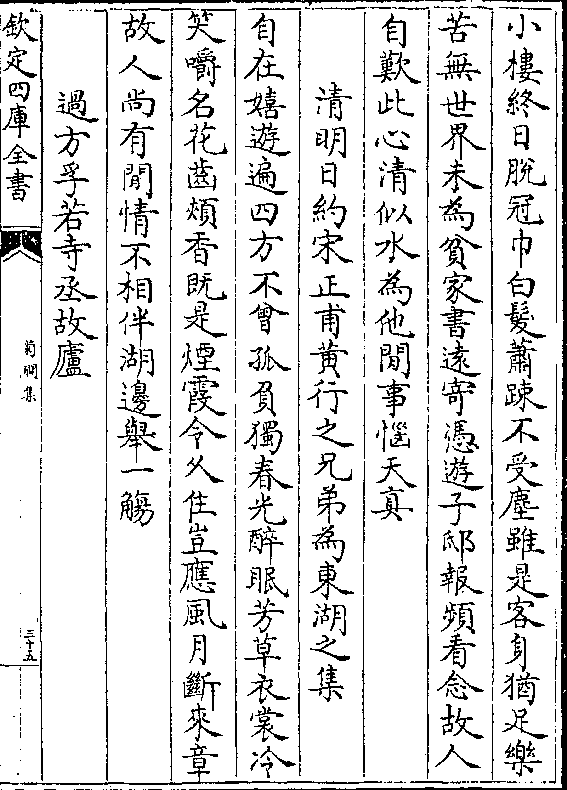 小樓終日脫冠巾白髮蕭踈不受塵雖是客身猶足樂
苦無世界未為貧家書遠寄憑遊子邸報頻看念故人
自歎此心清似水為他閒事惱天真
清明日約宋正甫黃行之兄弟為東湖之集
自在嬉遊遍四方不曾孤負獨春光醉眠芳草衣裳冷
笑嚼名花齒頰香既是煙霞令久住豈應風月斷來章
故人尚有閒情不相伴湖邊舉一觴
過方孚若寺丞故廬
欽定四庫全書
菊磵集
三十五